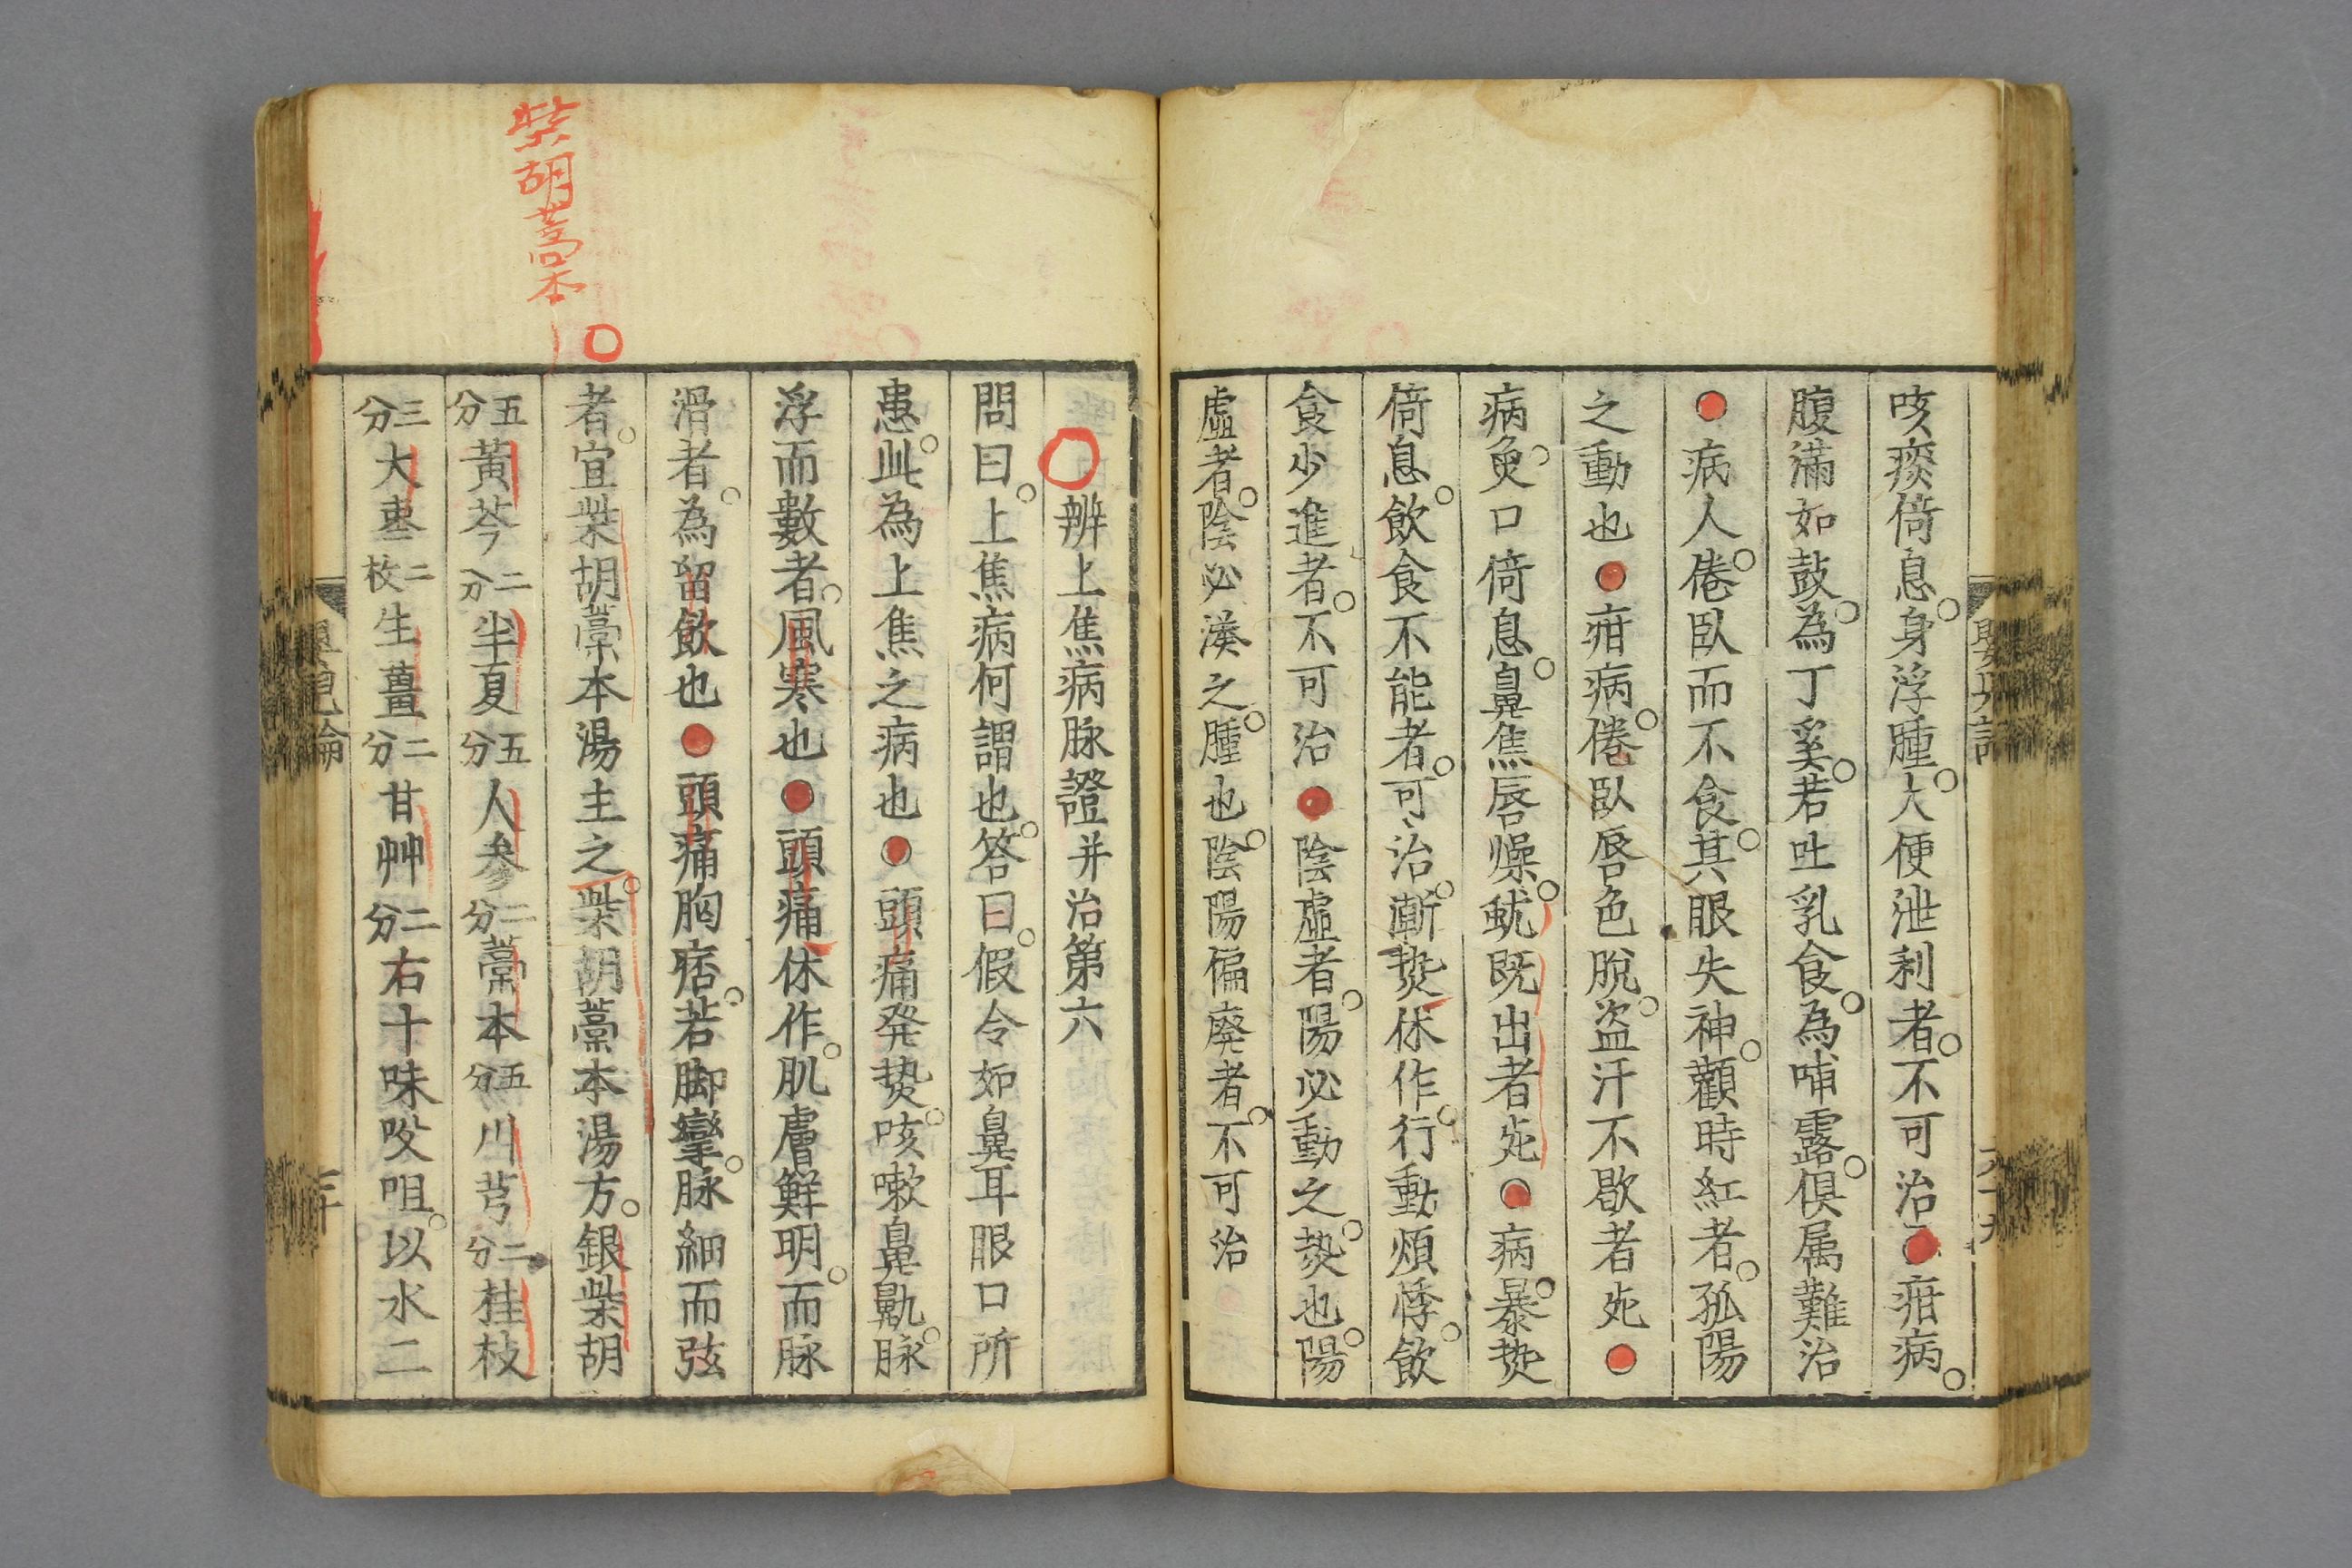 咳痰倚息。身浮腫。大便泄利者。不可治●疳病。
腹滿如鼓。為丁奚。若吐乳食。為哺露。俱属難治
●病人。倦臥而不食。其眼失神。顴時紅者。孤陽
之動也●疳病。倦臥唇色脫。盗汗不歇者死●
病奐。口倚息。鼻焦唇燥。魷既出者死●病。暴𤍠
倚息。飲食不能者。可治。漸𤍠休作。行動煩悸。飲
食少進者。不可治●陰虛者。陽必動之。𤍠也。陽
虛者。陰必湊之。腫也。陰陽偏廢者。不可治
〇辨上焦病脉證并治第六
問曰。上焦病何謂也。答曰。假令如鼻耳眼口所
患。此為上焦之病也●頭痛発𤍠。咳嗽鼻鼽。脉
浮而數者。風寒也●頭痛休作。肌膚鮮明。而脉
滑者。為留飲也●頭痛胸痞。若脚攣。脉細而弦
者。宜柴胡藁本湯主之。柴胡藁本湯方。銀柴胡
五分黃芩二分半夏五分人參二分藁本五分川芎二分桂枝
三分大棗二枚生薑二分甘艸二分右十味㕮咀。以水二
柴胡藁本
〇